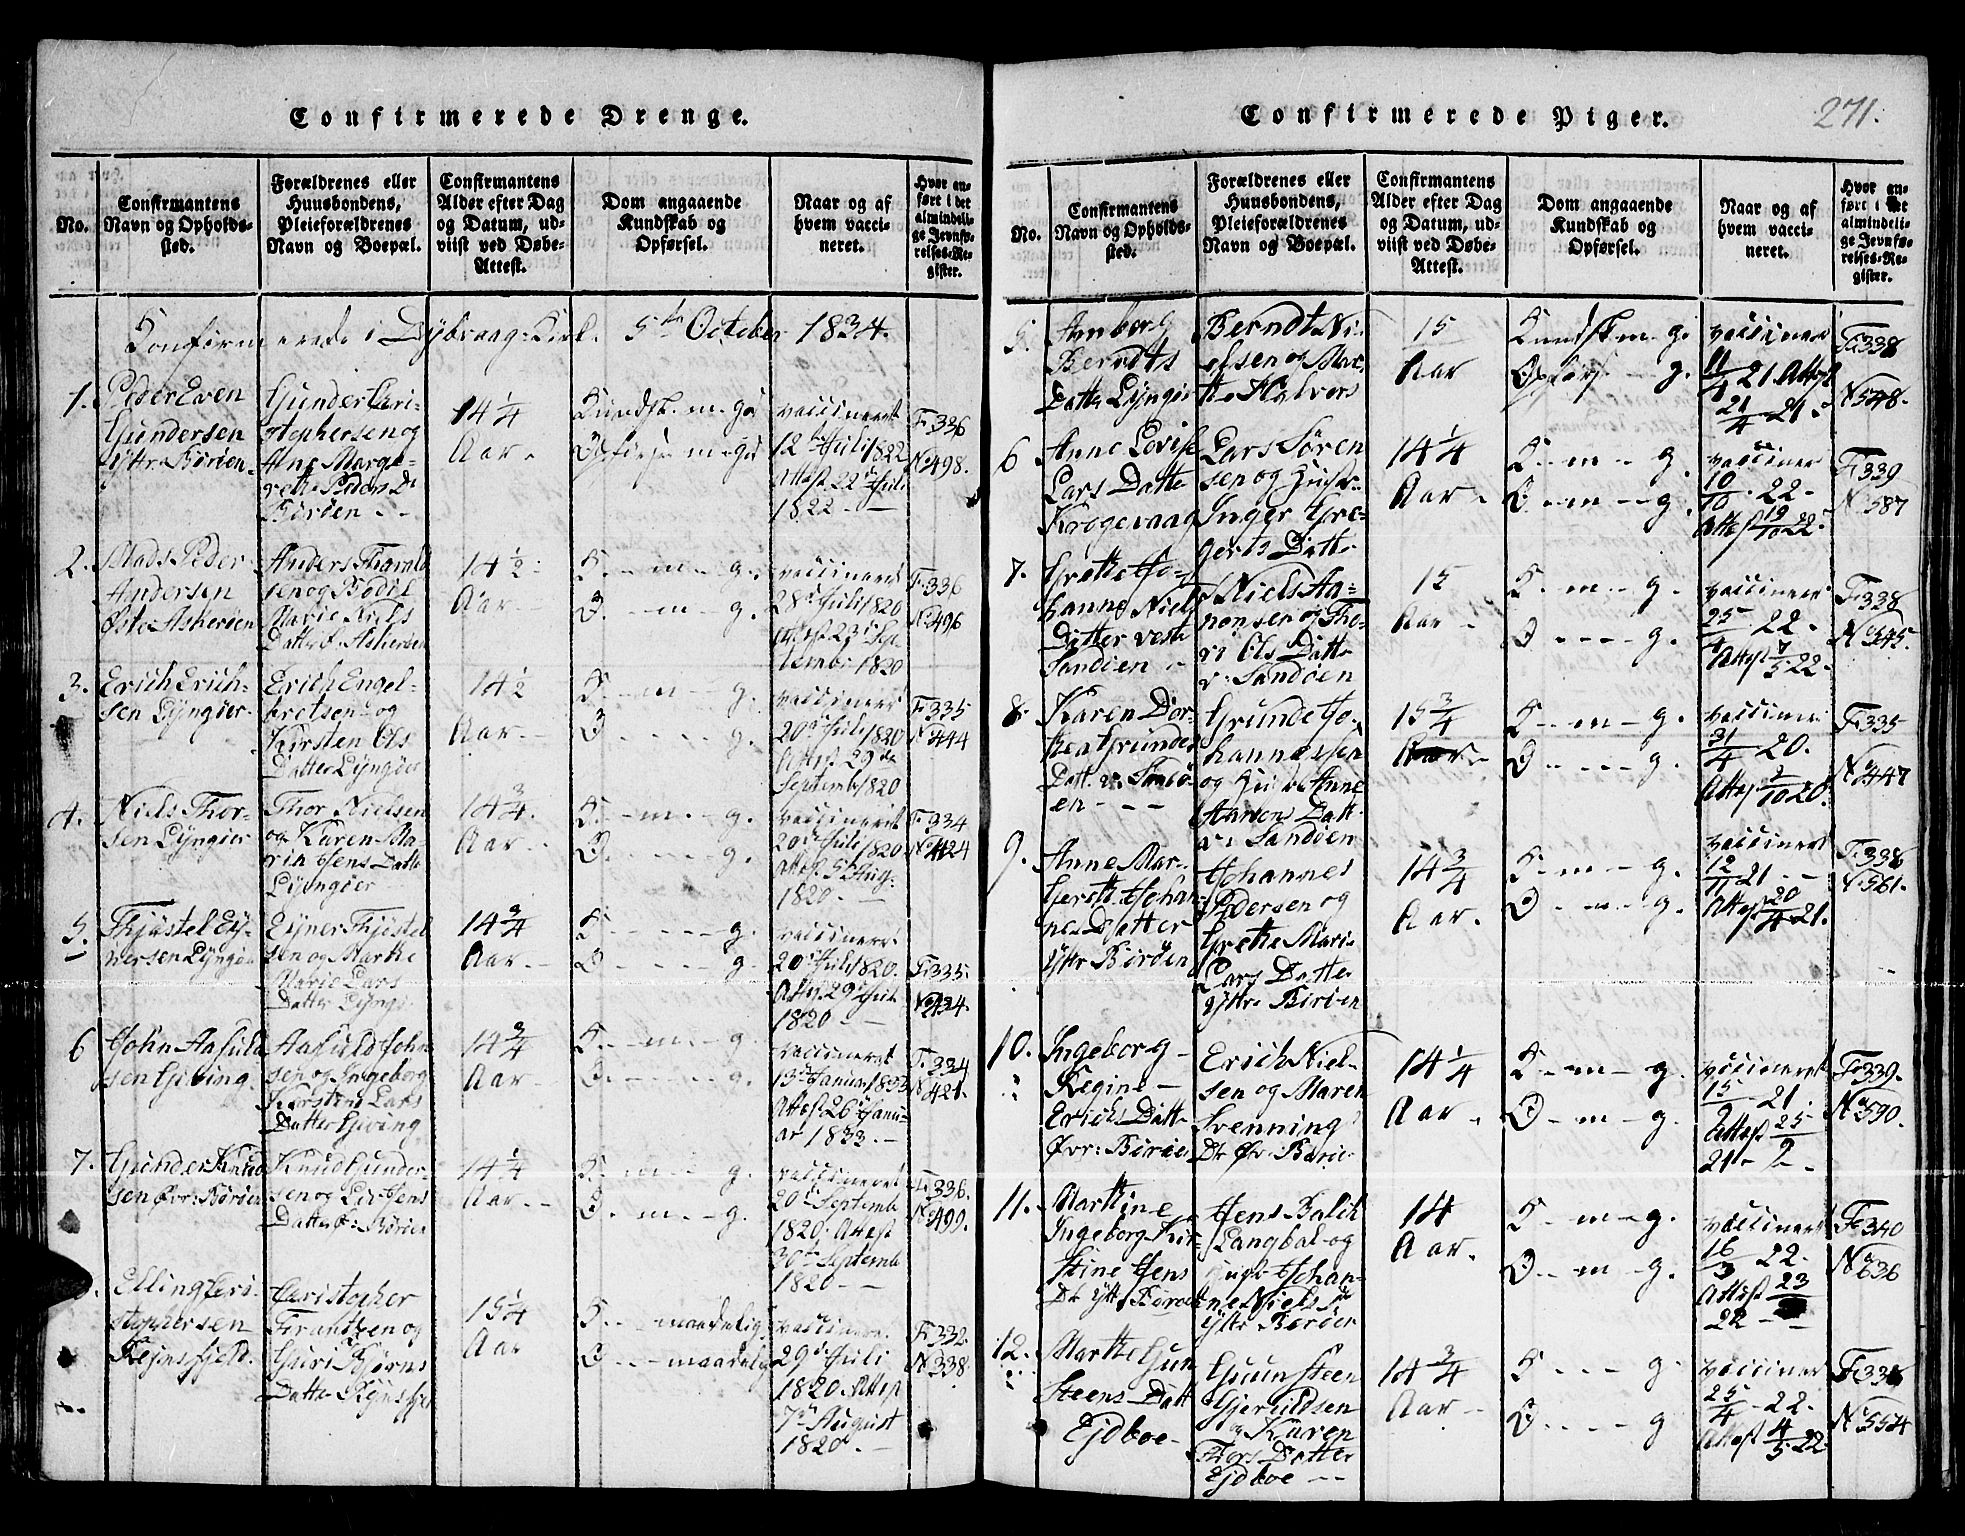 Confirmerede Drenge.
No.
Confirmantens
Navn og Opholds-
sted.
Forældrenes eller
Huusbondens,
Pleieforældrenes
Navn og Boepæl.
Confirmantens
Alder efter Dag
og Datum, ud-
viist ved Døbe-
Attest.
Dom angaaende
Kundskab og
Opførsel.
Naar og af
hvem vacci-
neret.
Hvor an-
ført i det
almindeli-
ge Jevnfø-
relses-Re-
gister.
Confirmerede i Dybvaag Kirke 5te October 1834.
1.
Peder Even
Gundersen
Yttre Borøen
Gunder Chri-
stophersen og
Ane Marge-
rethe Peders D
Borøen
14 1/4
Aar
Kundsk. m. god
Opførs. m. god
vaccineret
12te Juli 1822
Attest 22 Juli
1822
F. 336
No 498.
2.
Mads Peder
Andersen
Øste Askerøen
Anders Thorvald
sen og Bodil
Marie Niels
Datter Ø. Askerøen
14 1/2
Aar
K. - m - g.
O. - m - g.
vaccineret
28de Juli 1820
Attest 23de Sep
tembr 1820
F. 336
No 496
3.
Erich Erich-
sen Lyngøer
Erich Engel-
bretsen og
Kirsten Ols
Datter Lyngøer
14 1/2
Aar
K. - m - g.
O. - - - g.
vaccineret
20de Juli 1820
Attest 29de
Septemb 1820
F. 335
No 444
4.
Niels Thor-
sen Lyngøer
Thor Nielsen
og Karen Ma-
rie Jens Datte
Lyngøer
14 3/4
Aar
K. - m. - g.
O. - - - g.
vaccineret
20de Juli 1820
Attest 5 Aug.
1820
F. 334
No 424
5.
Thjøstel Ey-
nersen Lyngøer
Eyner Thjøstel
sen og Marthe
Marie Lars
Datter Lyngø
14 3/4
Aar
K - - - g.
O - - - g.
vaccineret
20de Juli 1820
Attest 29de Juli
1820
F. 335.
No 434.
6
John Aasuld
sen Gjeving
Aasuld John
sen og Ingeborg
Kirstine Lars
Datter Gjeving
14 3/4
Aar
K. - m. - g.
O. - - - g.
vaccineret
13de Januar 1833
Attest 26de Janu-
ar 1833.
F. 334
No 421.
7.
Gunder Knud
sen Øvr: Borøen
Knud Gunder-
sen og Liv Jens
Datter Ø: Borøen
14 1/4
Aar
K. - m - g.
O. - m. - g.
vaccineret
20de Septemb
1820. Attest
30te Septemb
1820
F. 336.
No 499.
Elling Chri-
stophersen
Reinsfjeld.
Christopher
Frantzen og
Guri Bjørns
Datter Reinsfjel
15 1/4
Aar
K. - - maadelig
O. - - maadelig
vaccineret
29de Juli
1820. Attest
7de August
1820.
F. 332
No 338.
Confirmerede Piger.
271.
No.
Confirmantens
Navn og Opholds-
sted.
Forældrenes eller
Huusbondens,
Pleieforældrenes
Navn og Boepæl.
Confirmantens
Alder efter Dag
og Datum, ud-
viist ved Døbe-
Attest.
Dom angaaende
Kundskab og
Opførsel.
Naar og af
hvem vacci-
neret.
Hvor an-
ført i det
almindeli-
ge Jevnfø-
relses-Re-
gister.
5.
Anborg
Berndts
Datter Lyngør
Berndt Ni-
elsen og Mar-
the Halvors
15
Aar
Kundsk m - g.
Opførs - g.
vaccineret
11/4 21 Attest
21/4 21.
F. 338
No 548.
6
Anne Lovise
Lars Datte
Krogevaag
Lars Søren
sen og Hustr.
Inger Gre-
gerts Datte
14 1/4
Aar
K. - m - g.
O. - m - g.
vaccineret
10/10 22
Attest 19/10 22.
F. 339
No 587
7.
Grethe Jo-
hanne Niels
Datter Vestr
Sandøen
Niels Aa-
nonsen og Tho-
ri Ols Datte
v: Sandøen
15
Aar
K. - m - g.
O - - - g.
vaccineret
25/4 22
Attest 7/5 22.
F. 338
No 545.
8
Karen Dor-
thea Grundes
Datt. v: Sandø
en
Grunde Jo-
hannessen
og Hustr Anne
Aanons Datt
v: Sandøen
15 3/4
Aar
K - m - g.
O - - - g.
vaccineret
31/4 20.
Attest 2/10 20.
F. 335
No 447
9.
Anne Mar-
gerethe Johan-
nes Datter
Yttre Borøen
Johannes
Pedersen og
Grethe Marie
Lars Datte
Yttre Borøen
14 3/4
Aar.
K. - m - g.
O - m - g.
vaccineret
12/11 21
Attest 20/4 21.
F. 338
No 561.
10.
Ingeborg
Regine
Erichs Datte
Øvr: Borøe
Erich Niel-
sen og Maren
Svenning
Dr Øv Borøe
14 1/4
Aar
K. - m - g.
O - m - g.
vaccineret
15/9 21.
Attest 25/9
21
F. 339.
No 590.
11.
Marthine
Ingeborg Kir-
stine Jens
Dr Ytt: Borøen
Jens Balth
Langbal og
Johan-
ne Niels Dr
Yttre Borøen
14
Aar.
K. - m - g.
O. - m - g.
vaccineret
16/3 22.
Attest 23
22
F. 340
No 636
12.
Marthe Gun
Steens Datt
Ejdboe
Guun Steen
Gjeruldsen
og Karen
Thors Datter
Ejdboe
14 3/4
Aar
K - - - g.
O - - - g
vaccineret
25/4 22.
Attest 4/5 22
F. 338
No 554